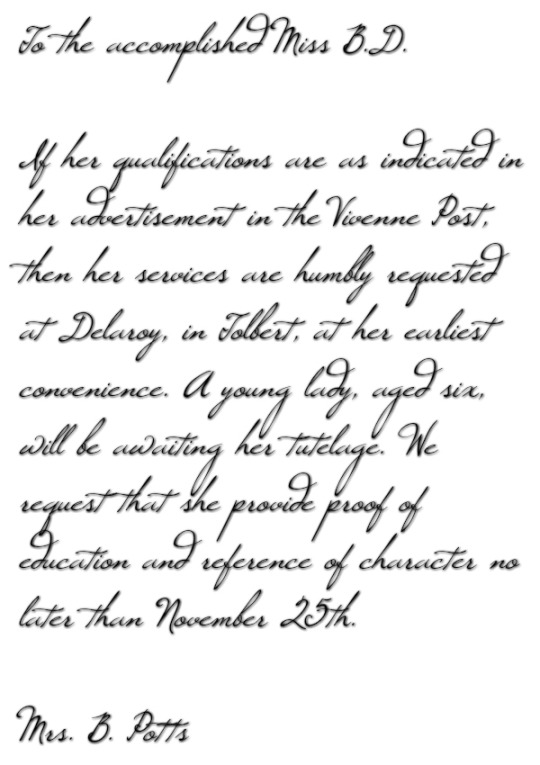 To the accomplished Miss B.D.
If her qualifications are as indicated in
her advertisement in the Vivenne Post,
then her services are humbly requested
at Delaroy, in Tolbert, at her earliest
convenience. A young lady, aged six,
will be awaiting her tutelage. We
request that she provide proof of
education and reference of character no
later than November 25th.
Mrs. B. Potts